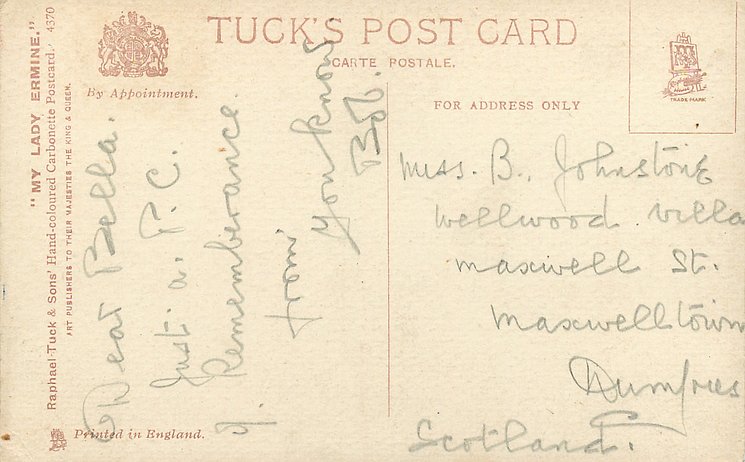 "MY LADY ERMINE."
Raphael Tuck & Sons' Hand-coloured Carbonette Postcard. 4370
ART PUBLISHERS TO THEIR MAJESTIES THE KING & QUEEN.
By Appointment.
TUCK'S POST CARD
CARTE POSTALE.
FOR ADDRESS ONLY
TRADE MARK
Dear Bella.
Just a. P.C.
of.
Rememberance.
from
You know
Bob.
Miss. B. Johnstone
Wellwood Villa
Maxwell St.
Maxwelltown
Dumfries
Scotland.
Printed in England.